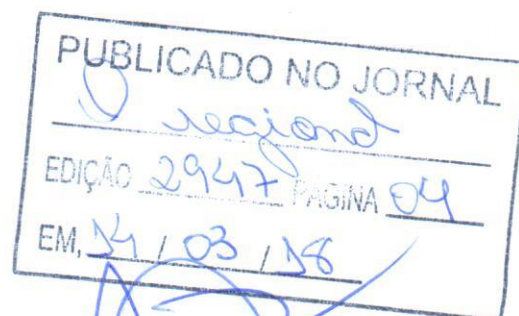 PUBLICADO NO JORNAL
O regional
EDIÇÃO 2947 PAGINA 04
EM, 14 / 03 / 18